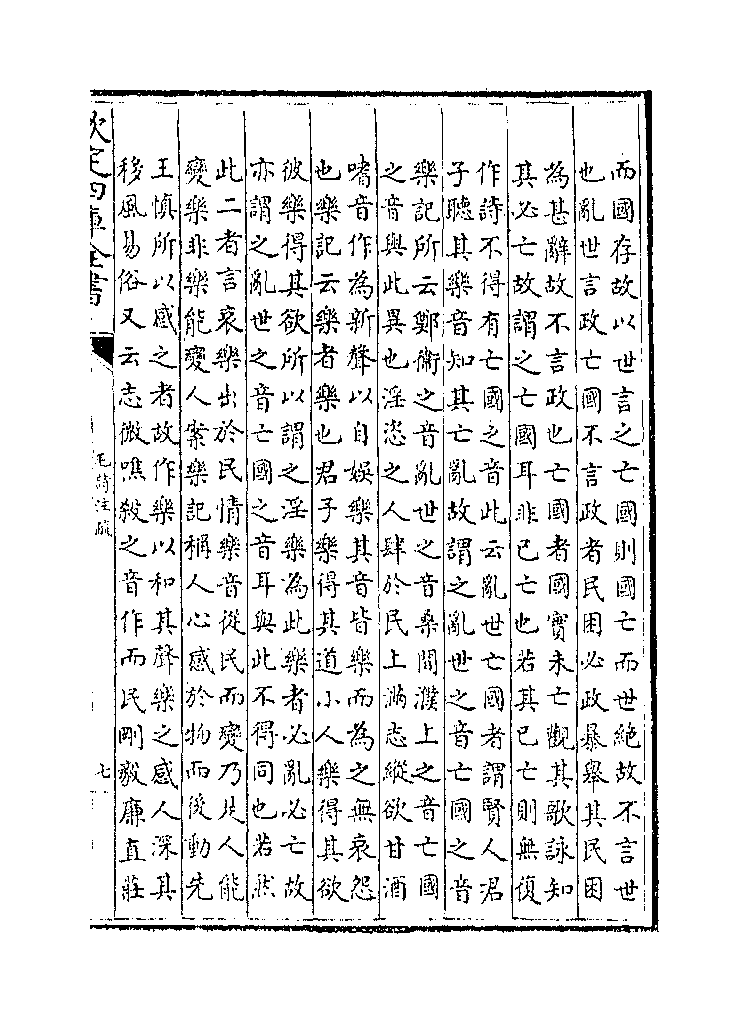 而國存故以世言之亡國則國亡而世絶故不言世
也亂世言政亡國不言政者民困必政暴舉其民困
為甚辭故不言政也亡國者國實未亡觀其歌詠知
其必亡故謂之亡國耳非已亡也若其已亡則無復
作詩不得有亡國之音此云亂世亡國者謂賢人君
子聽其樂音知其亡亂故謂之亂世之音亡國之音
樂記所云鄭衛之音亂世之音桑間濮上之音亡國
之音與此異也淫恣之人肆於民上滿志縱欲甘酒
嗜音作為新聲以自娛樂其音皆樂而為之無哀怨
也樂記云樂者樂也君子樂得其道小人樂得其欲
彼樂得其欲所以謂之淫樂為此樂者必亂必亡故
亦謂之亂世之音亡國之音耳與此不得同也若然
此二者言哀樂出於民情樂音從民而變乃是人能
變樂非樂能變人案樂記稱人心感於物而後動先
王慎所以感之者故作樂以和其聲樂之感人深其
移風易俗又云志微噍殺之音作而民剛毅廉直莊
欽定四庫全書
毛詩注疏
七